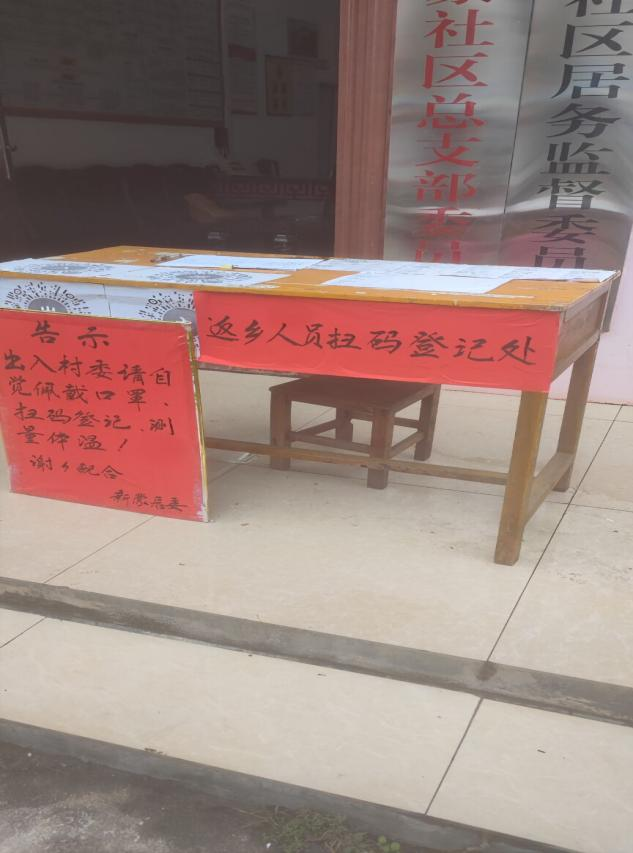 社区总支部委员
社区居务监督委员
返乡人员扫码登记处
告示
出入村委请自
觉佩戴口罩、
扫码登记、测
量体温！
谢乡配合
新蒙居委